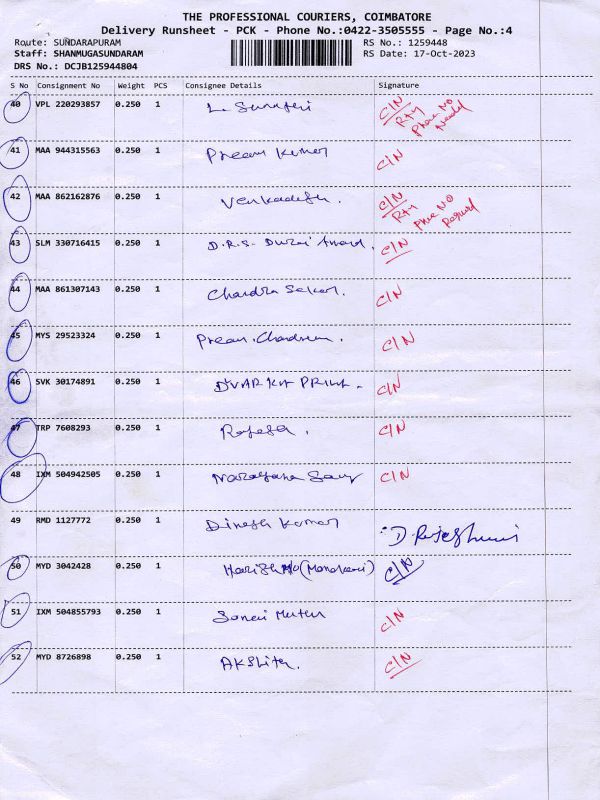 THE PROFESSIONAL COURIERS, COIMBATORE
Delivery Runsheet - PCK - Phone No.:0422-3505555 - Page No.:4
Route: SUNDARAPURAM RS No.: 1259448
Staff: SHANMUGASUNDARAM RS Date: 17-Oct-2023
DRS No.: DCJB125944804
S No Consignment No Weight PCS Consignee Details Signature
40 VPL 220293857 0.250 1 L. C/N
RTY Phone NO
Needed
41 MAA 944315563 0.250 1 Prem Kumar C/N
42 MAA 862162876 0.250 1 Venkadesh. C/N
RTY Phone NO
Required
43 SLM 330716415 0.250 1 D.R.S. Durai Anand. C/N
44 MAA 861307143 0.250 1 Chandra Sekar. C/N
45 MYS 29523324 0.250 1 Prem. C/N
46 SVK 30174891 0.250 1 C/N
47 TRP 7608293 0.250 1 Rajesh. C/N
48 IXM 504942505 0.250 1 Narayana Samy C/N
49 RMD 1127772 0.250 1 Dinesh Kumar D. Rajeshwari
50 MYD 3042428 0.250 1 C/N
51 IXM 504855793 0.250 1 Muthu C/N
52 MYD 8726898 0.250 1 C/N